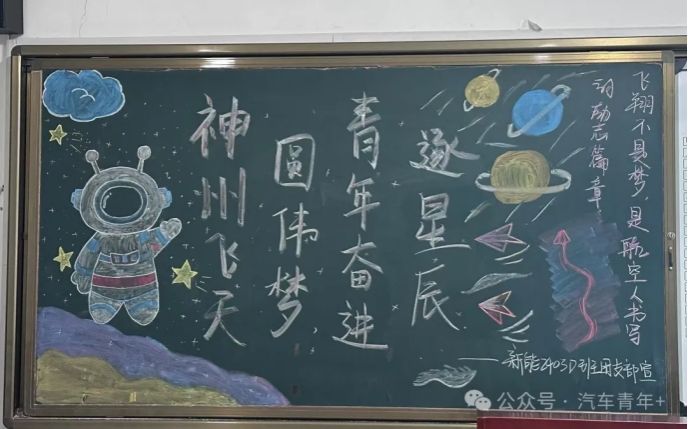 神州飞天
圆伟梦，
青年奋进
逐星辰
飞翔不是梦，是航空人书写
的励志篇章
——新能2403D班团支部宣
公众号·汽车青年+